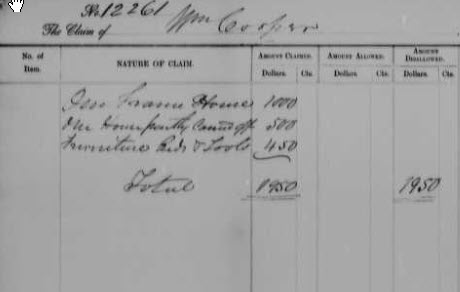 No. 12261
The Claim of Wm Cooper
No. of Item. NATURE OF CLAIM. AMOUNT CLAIMED. AMOUNT ALLOWED. AMOUNT DISALLOWED.
Dollars. Cts. Dollars. Cts. Dollars. Cts.
One Frame House 1000
One House partly Carried off 500
Furniture beds & Tools 450
Total 1950 1950